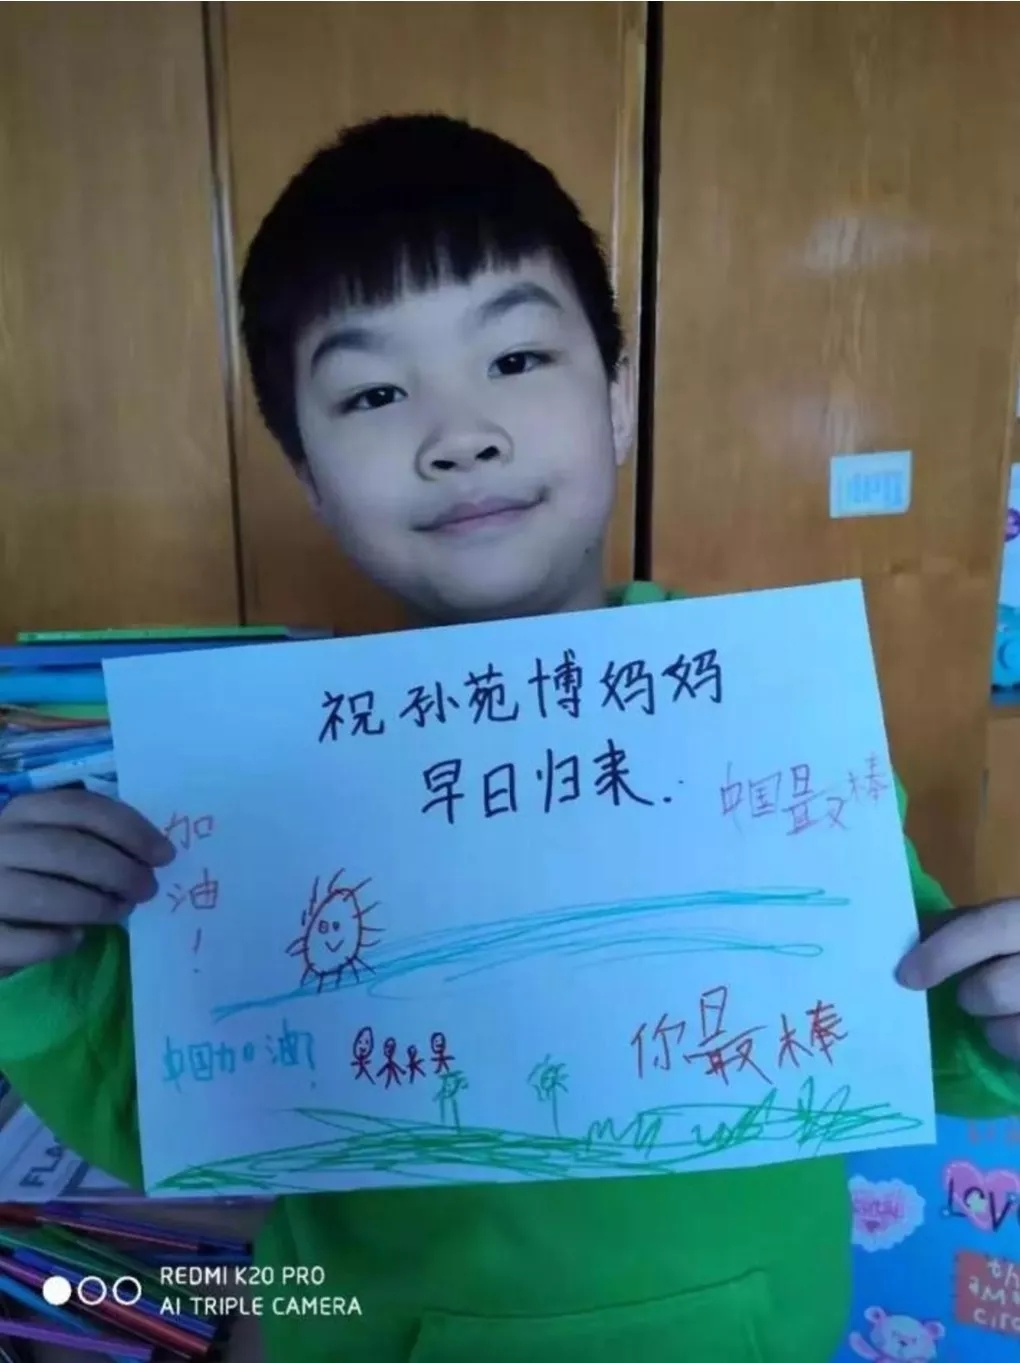 祝孙苑博妈妈
早日归来.
中国最棒
加
油
!
中国加油!
你最棒
LOVE
REDMI K20 PRO
AI TRIPLE CAMERA